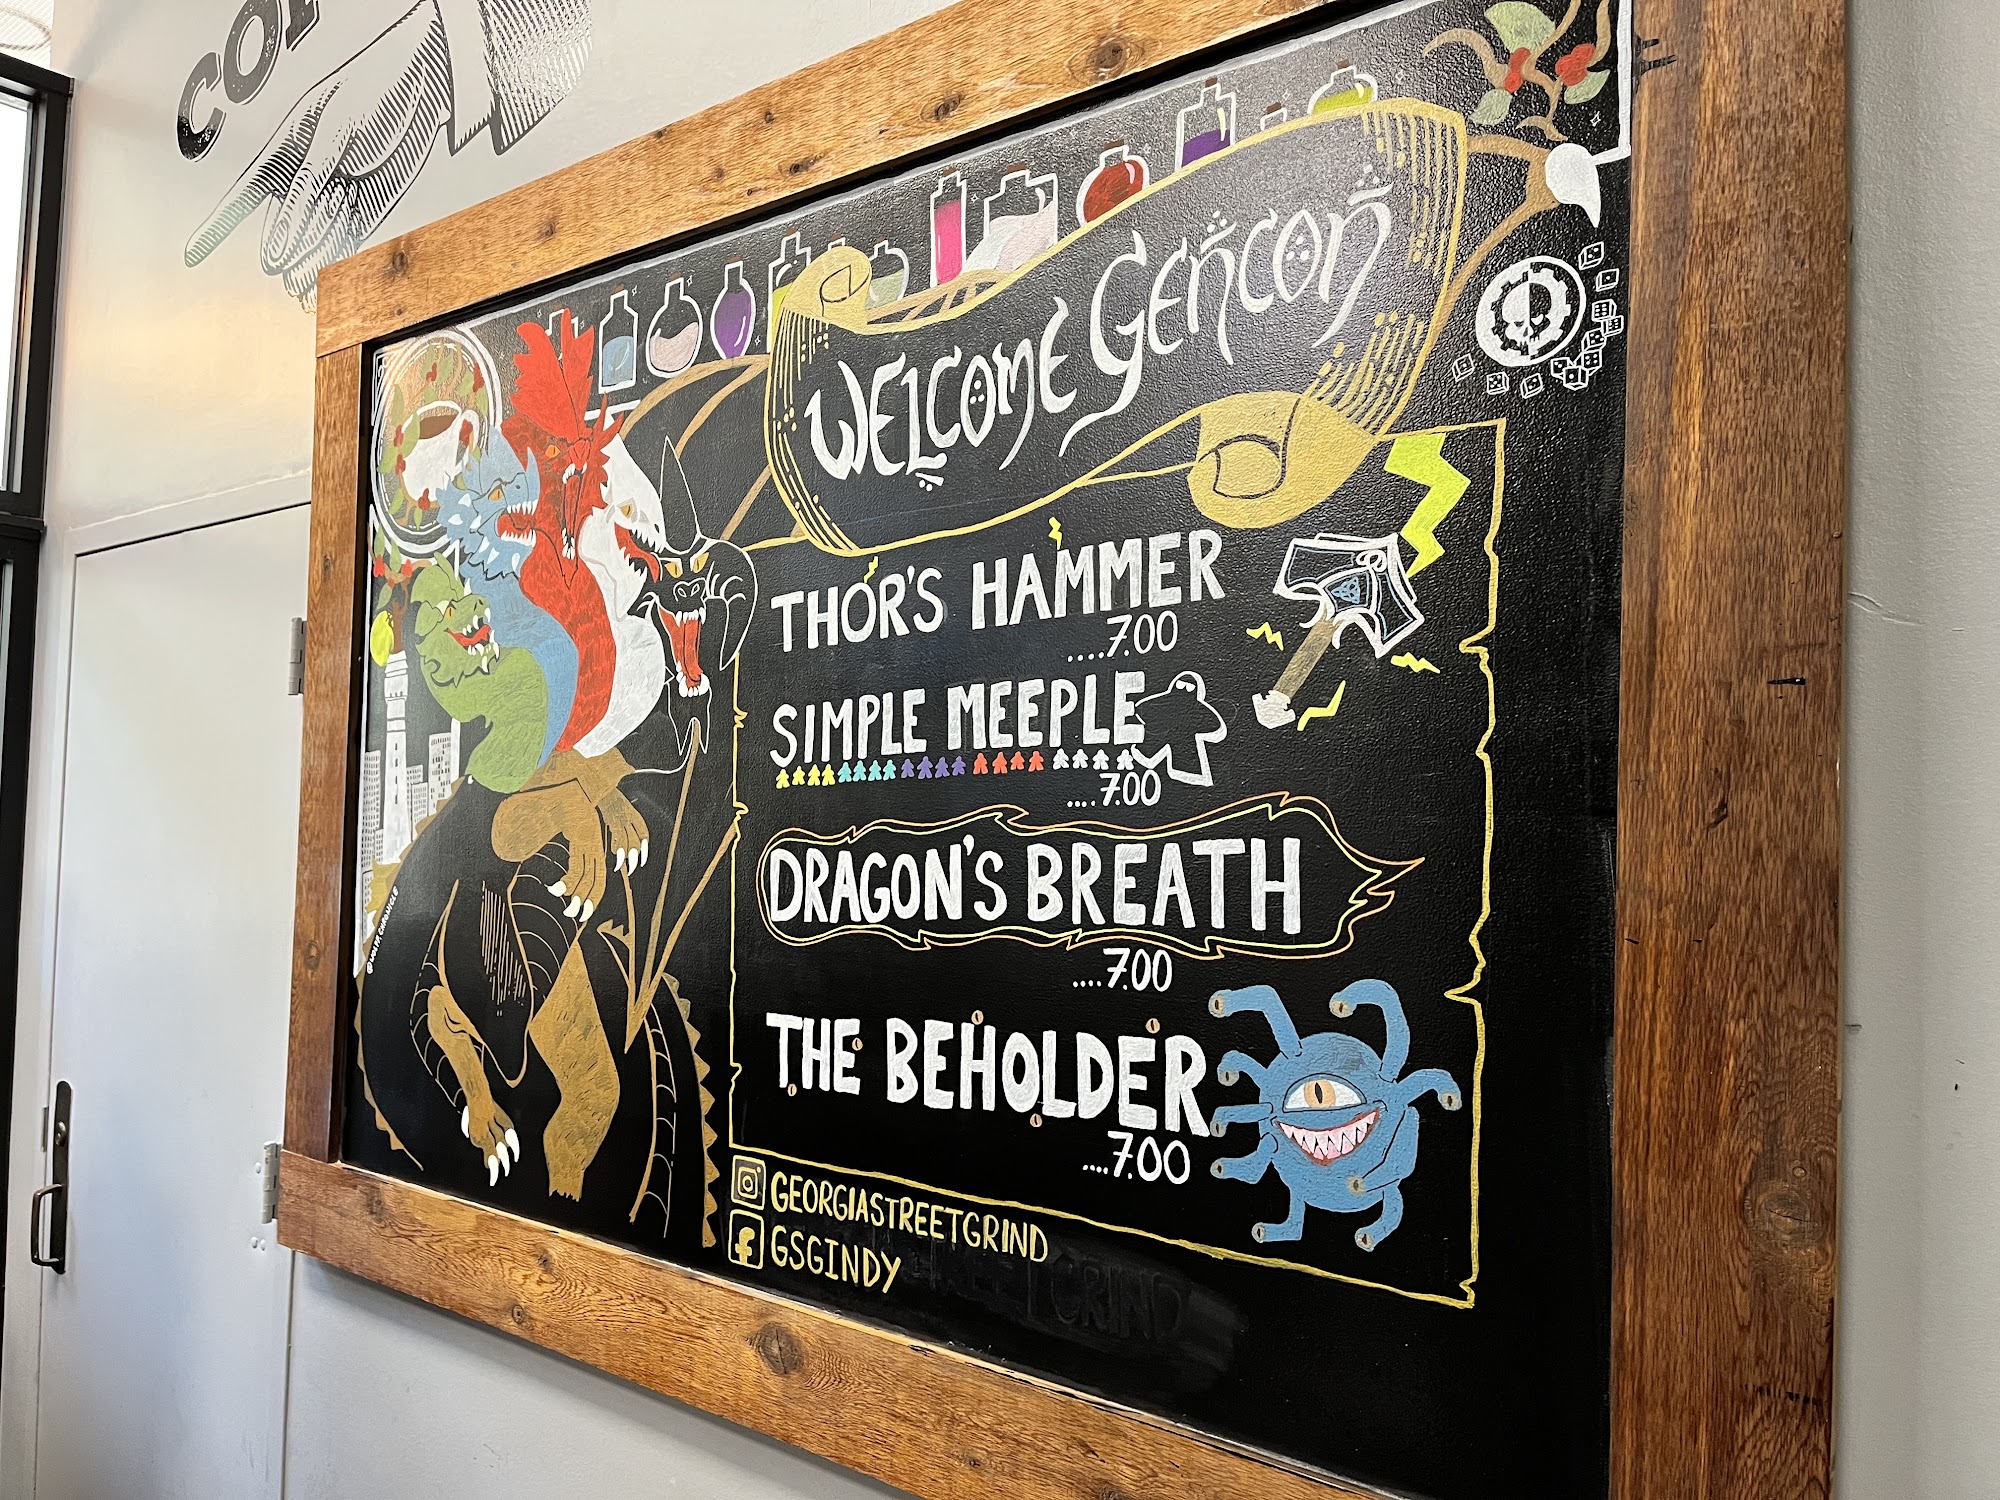 WELCOME GENCON
THOR'S HAMMER
.....7.00
SIMPLE MEEPLE
....7.00
DRAGON'S BREATH
....7.00
THE BEHOLDER
....7.00
GEORGIASTREETGRIND
GSGINDY
GRIND